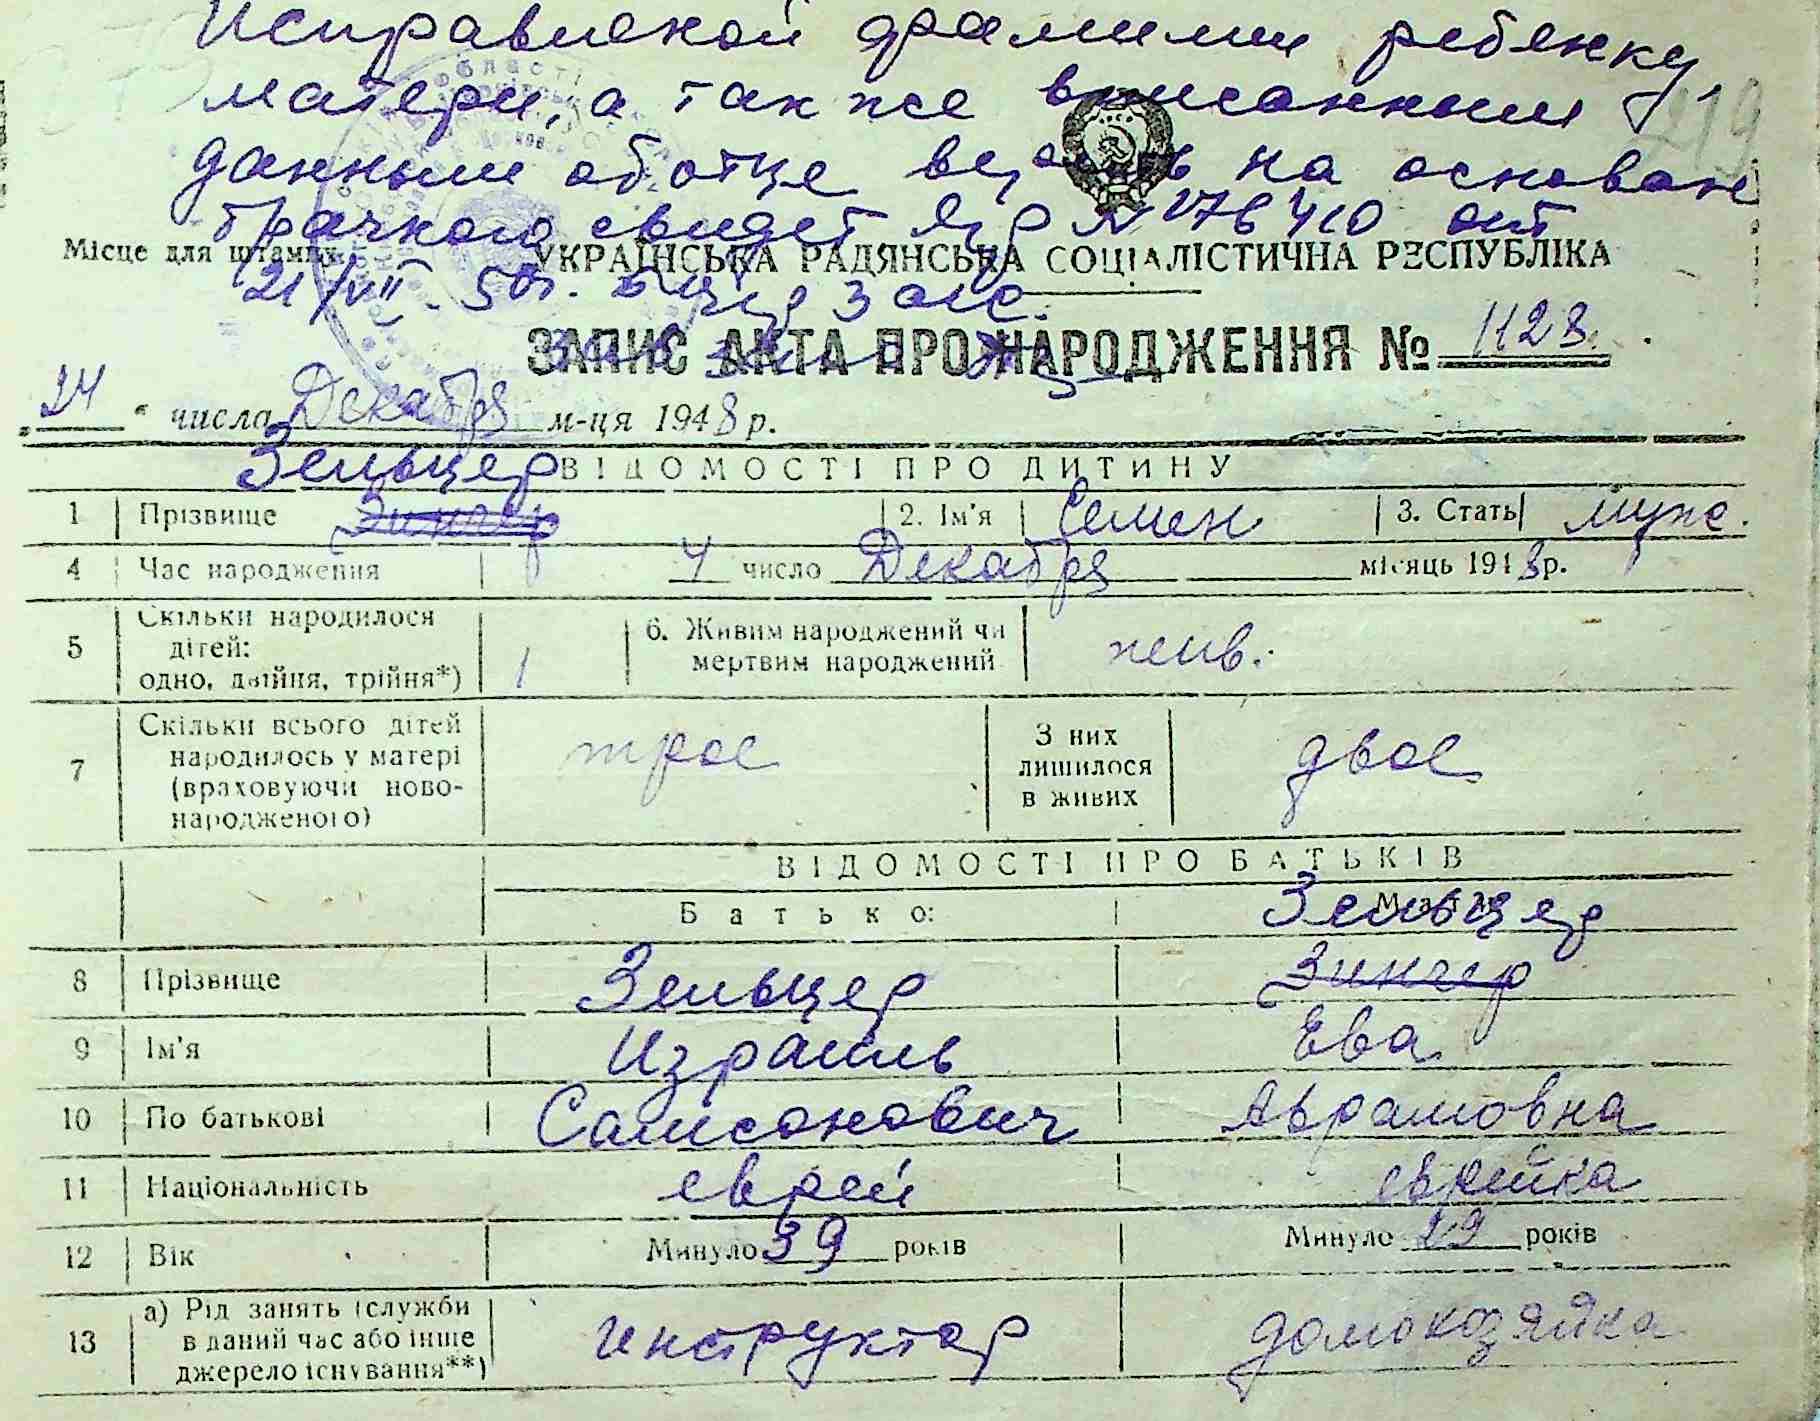 Исправленой фамилии ребенку,
матери, а также вписанным
данным об отце верить на основан
брачного свидет № 276410 от
Місце для штампу УКРАЇНСЬКА РАДЯНСЬКА СОЦІАЛІСТИЧНА РЕСПУБЛІКА
21/VII - 50г.
ЗАПИС АКТА ПРО НАРОДЖЕННЯ № 1128.
„24“ числа Декабря м-ця 1948 р.
Зельцер ВІДОМОСТІ ПРО ДИТИНУ
1 Прізвище Зингер 2. Ім'я Семен 3. Стать муж.
4 Час народження 4 число Декабря місяць 1948 р.
5 Скільки народилося дітей: одно, двійня, трійня*) 1 6. Живим народжений чи мертвим народжений жив.
7 Скільки всього дітей народилось у матері (враховуючи новонародженого) трое З них лишилося в живих двое
ВІДОМОСТІ ПРО БАТЬКІВ
Батько: Мати: Зельцер
8 Прізвище Зельцер Зингер
9 Ім'я Израиль Ева
10 По батькові Самсонович Аврамовна
11 Національність еврей еврейка
12 Вік Минуло 39 років Минуло 29 років
13 а) Рід занять (служби в даний час або інше джерело існування**) инструктор домохозяйка